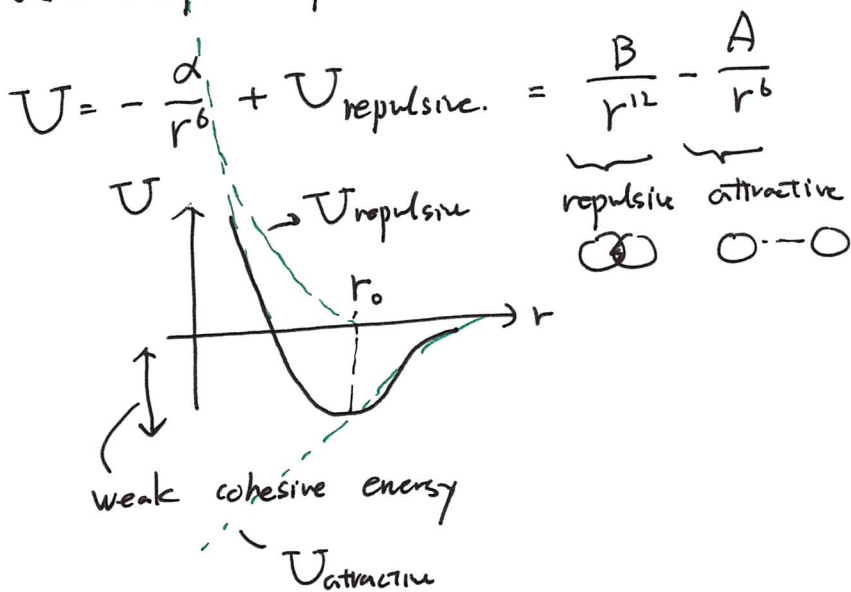 U = - α/r⁶ + U repulsive. = B/r¹² - A/r⁶
repulsive attractive
U
U repulsive
r₀
r
weak cohesive energy
U attractive